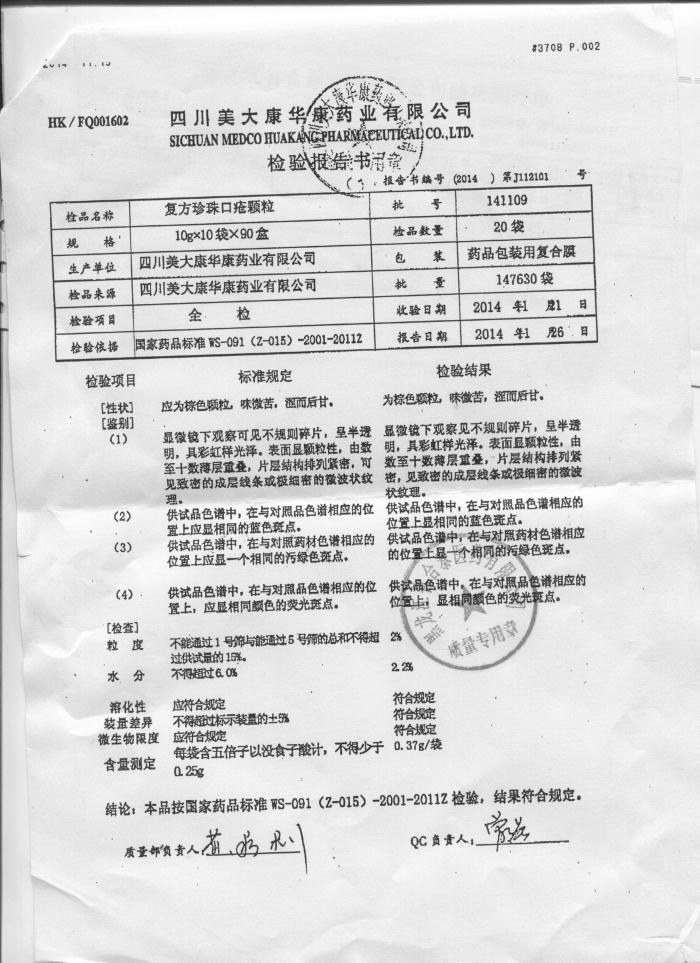 #3708 P.002
HK/FQ001602
四川美大康华康药业有限公司
SICHUAN MEDCO HUAKANG PHARMACEUTICAL CO., LTD.
检验报告书
报告书编号 (2014 ) 第J112101 号
检品名称 复方珍珠口疮颗粒 批 号 141109
规 格 10g×10袋×90盒 检品数量 20袋
生产单位 四川美大康华康药业有限公司 包 装 药品包装用复合膜
检品来源 四川美大康华康药业有限公司 批 量 147630袋
检验项目 全 检 收验日期 2014 年1 月1 日
检验依据 国家药品标准WS-091（Z-015）-2001-2011Z 报告日期 2014 年1 月6 日
检验项目 标准规定 检验结果
[性状] 应为棕色颗粒，味微苦，涩而后甘。 为棕色颗粒，味微苦，涩而后甘。
[鉴别]
(1) 显微镜下观察可见不规则碎片，呈半透 显微镜下观察见不规则碎片，呈半透
明，具彩虹样光泽。表面显颗粒性，由数 明，具彩虹样光泽。表面显颗粒性，由
至十数薄层重叠，片层结构排列紧密，可 数至十数薄层重叠，片层结构排列紧
见致密的成层线条或极细密的微波状纹 密，见致密的成层线条或极细密的微波
理。 状纹理。
(2) 供试品色谱中，在与对照品色谱相应的位 供试品色谱中，在与对照品色谱相应的
置上应显相同的蓝色斑点。 位置上显相同的蓝色斑点。
(3) 供试品色谱中，在与对照药材色谱相应的 供试品色谱中，在与对照药材色谱相应
位置上应显一个相同的污绿色斑点。 的位置上显一个相同的污绿色斑点。
(4) 供试品色谱中，在与对照品色谱相应的位 供试品色谱中，在与对照品色谱相应的
置上，应显相同颜色的荧光斑点。 位置上，显相同颜色的荧光斑点。
[检查]
粒 度 不能通过1号筛与能通过5号筛的总和不得超 2%
过供试量的15%。
水 分 不得超过6.0% 2.2%
溶化性 应符合规定 符合规定
装量差异 不得超过标示装量的±5% 符合规定
微生物限度 应符合规定 符合规定
含量测定 每袋含五倍子以没食子酸计，不得少于 0.37g/袋
0.25g
结论：本品按国家药品标准WS-091（Z-015）-2001-2011Z检验，结果符合规定。
质量部负责人 QC负责人：
质量专用章